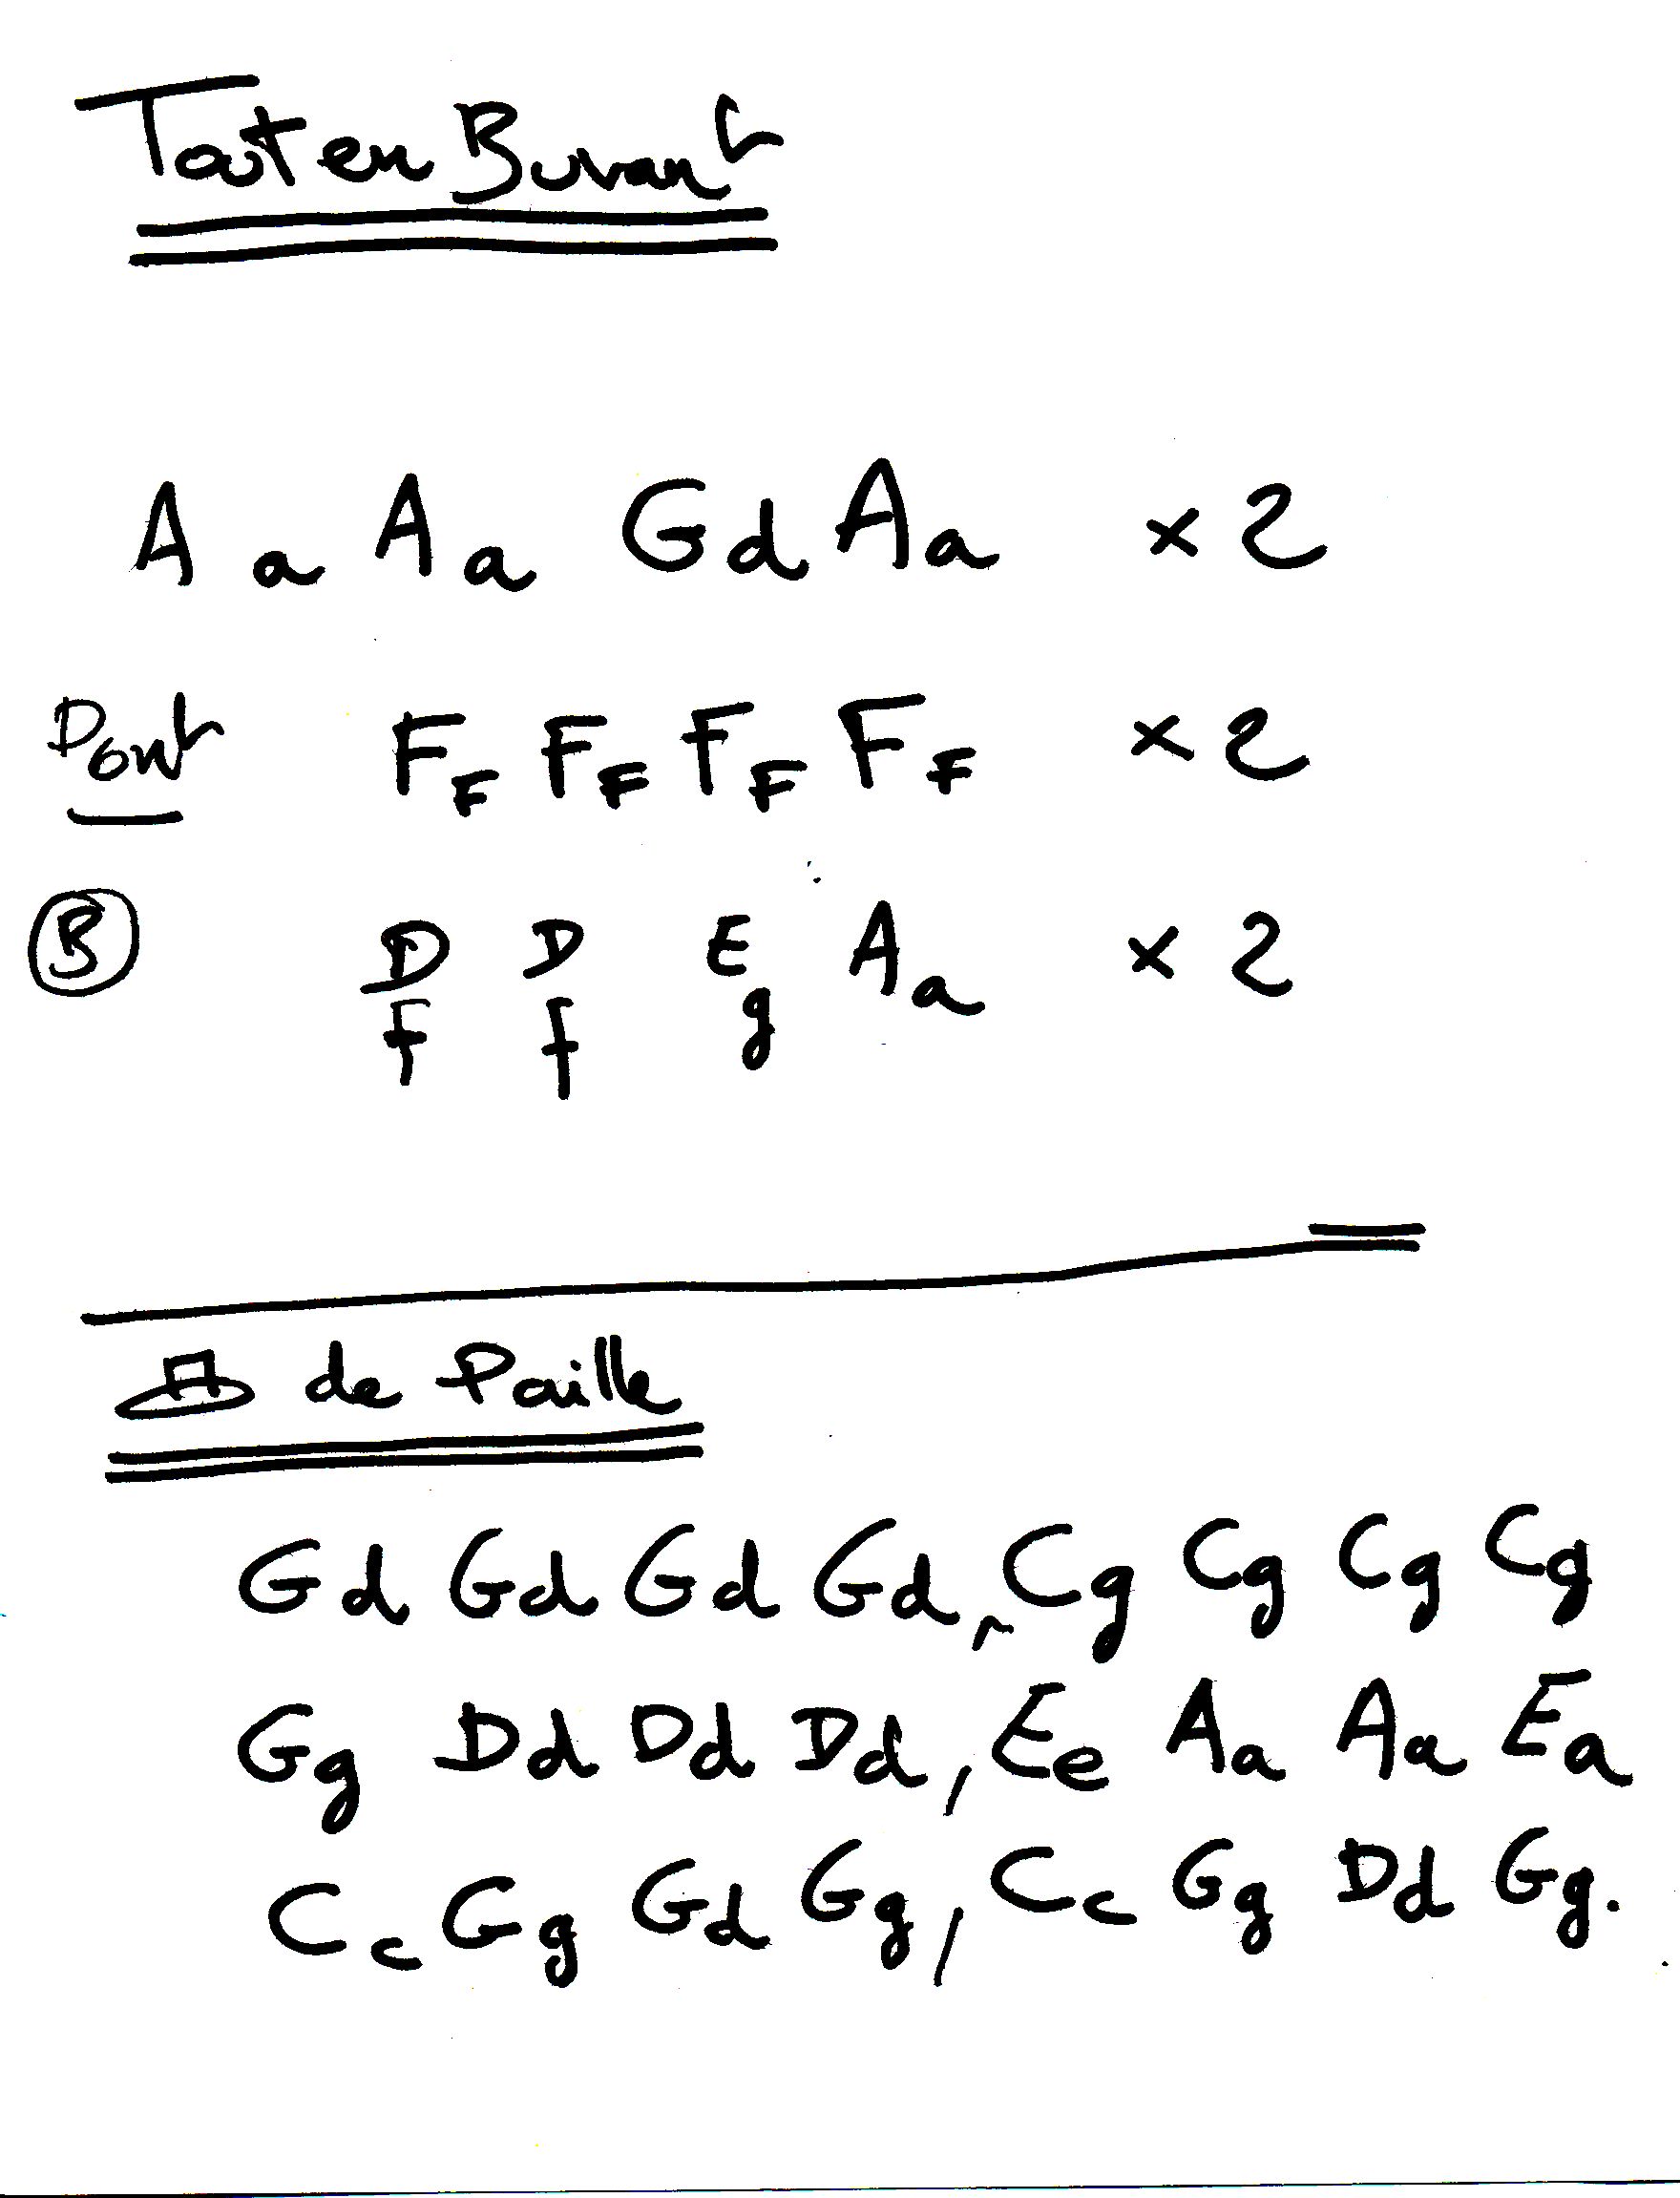 Tout en Buvant
A a A a G d A a x 2
Pont F F F F F F F F x 2
B D D E A a x 2
f f g
de Paille
Gd Gd Gd Gd, Cg Cg Cg Cg
Gg Dd Dd Dd, Ee Aa Aa Ea
Cc Gg Gd Gg, Cc Gg Dd Gg.